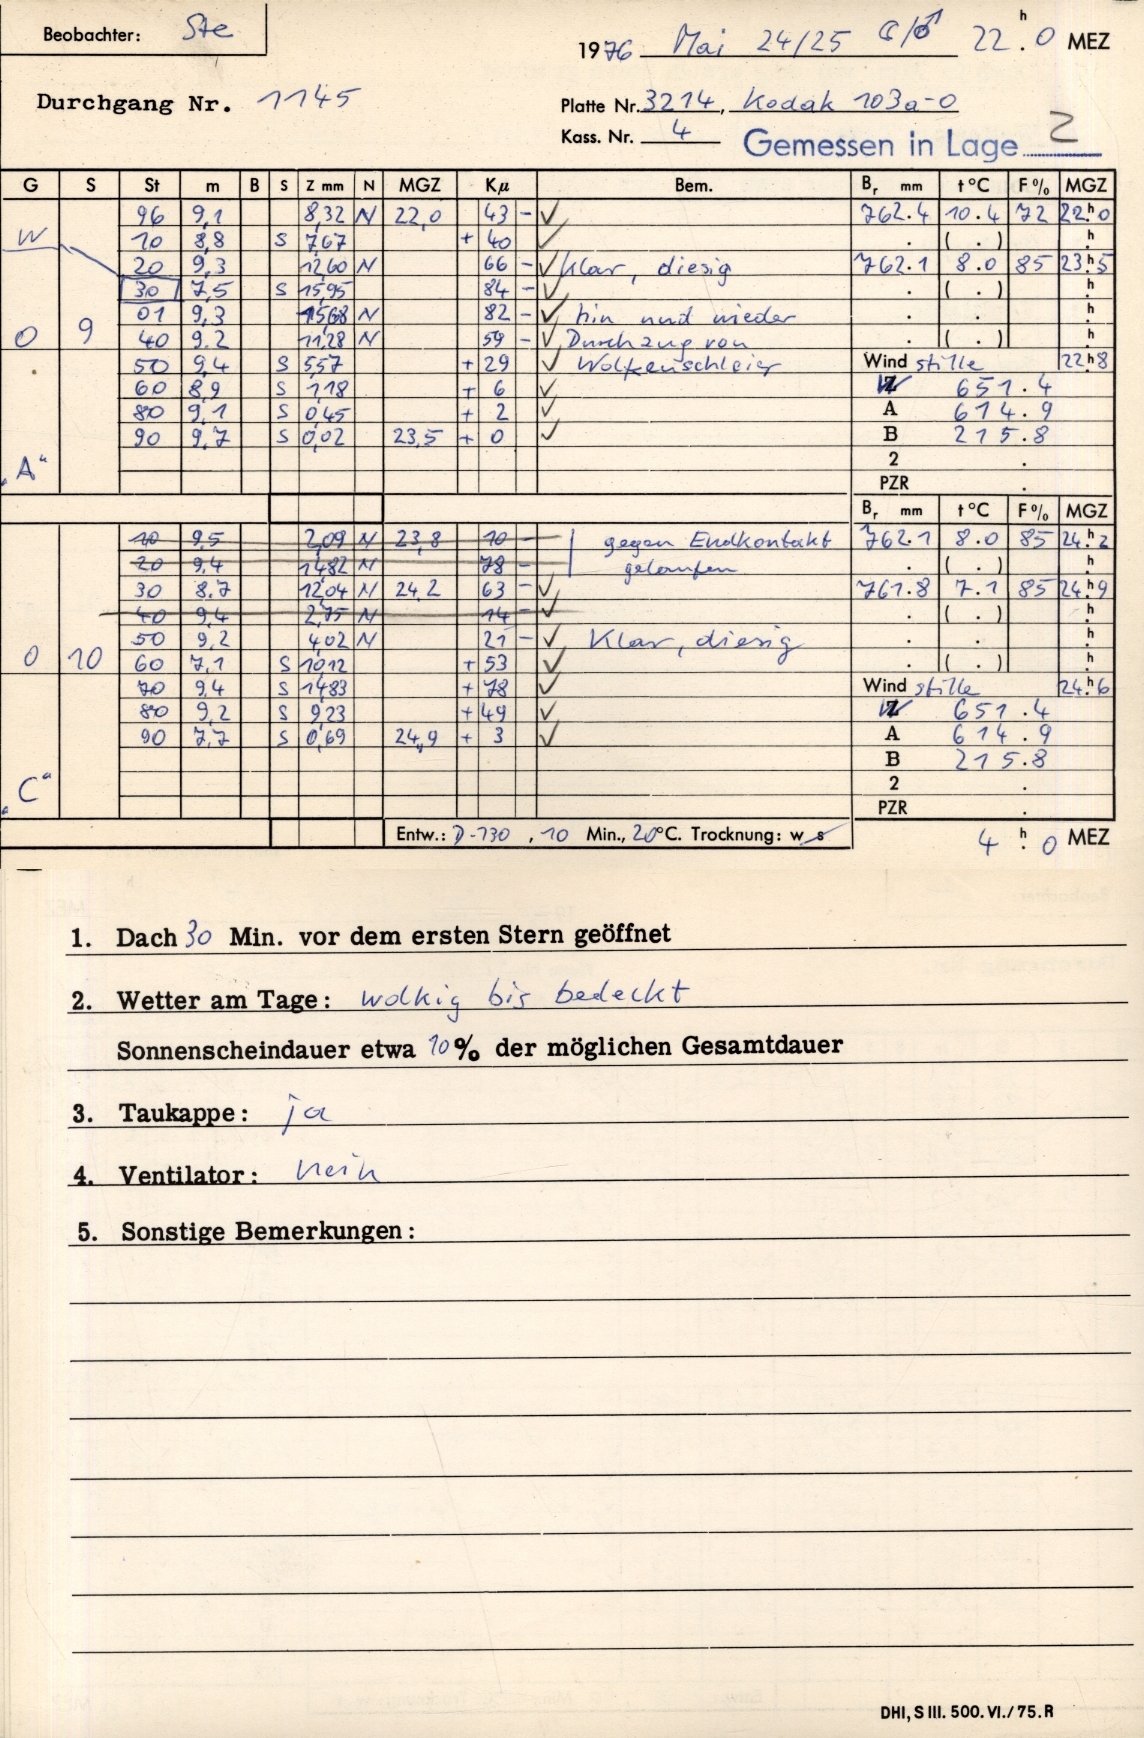 Beobachter: Ste
1976 Mai 24/25 ☾/♂ 22.ʰ0 MEZ
Durchgang Nr. 1145
Platte Nr. 3214, Kodak 103a-O
Kass. Nr. 4
Gemessen in Lage 2
G S St m B S Z mm N MGZ Kμ Bem. Bᵣ mm t °C F% MGZ
96 9,1 8,32 N 22,0 43 - ✓ 762.4 10.4 72 22.ʰ0
W 10 8,8 S 7,67 + 40 ✓ . ( . ) .ʰ
20 9,3 12,60 N 66 - ✓ Klar, diesig 762.1 8.0 85 23.ʰ5
30 7,5 S 15,95 84 - ✓ . ( . ) .ʰ
O 9 01 9,3 15,68 N 82 - ✓ hin und wieder . . .ʰ
40 9,2 11,28 N 59 - ✓ Durchzug von . ( . ) .ʰ
50 9,4 S 5,57 + 29 ✓ Wolkenschleier Wind stille 22.ʰ8
60 8,9 S 1,18 + 6 ✓ Z 651.4
80 9,1 S 0,45 + 2 ✓ A 614.9
90 9,7 S 0,02 23,5 + 0 ✓ B 215.8
„A“ 2 .
PZR .
Bᵣ mm t °C F% MGZ
10 9,5 2,09 N 23,8 10 - gegen Endkontakt 762.1 8.0 85 24.ʰ2
20 9,4 14,82 N 78 - gelaufen . ( . ) .ʰ
30 8,7 12,04 N 24,2 63 - ✓ 761.8 7.1 85 24.ʰ9
40 9,4 2,75 N 14 - ✓ . ( . ) .ʰ
50 9,2 4,02 N 21 - ✓ Klar, diesig . . .ʰ
O 10 60 7,1 S 10,12 + 53 ✓ . ( . ) .ʰ
70 9,4 S 14,83 + 78 ✓ Wind stille 24.ʰ6
80 9,2 S 9,23 + 49 ✓ Z 651.4
90 7,7 S 0,69 24,9 + 3 ✓ A 614.9
B 215.8
„C“ 2 .
PZR .
Entw.: D-130, 10 Min., 20°C. Trocknung: w s
4.ʰ0 MEZ
1. Dach 30 Min. vor dem ersten Stern geöffnet
2. Wetter am Tage: wolkig bis bedeckt
Sonnenscheindauer etwa 10% der möglichen Gesamtdauer
3. Taukappe: ja
4. Ventilator: nein
5. Sonstige Bemerkungen:
DHI, S III. 500. VI./75. R